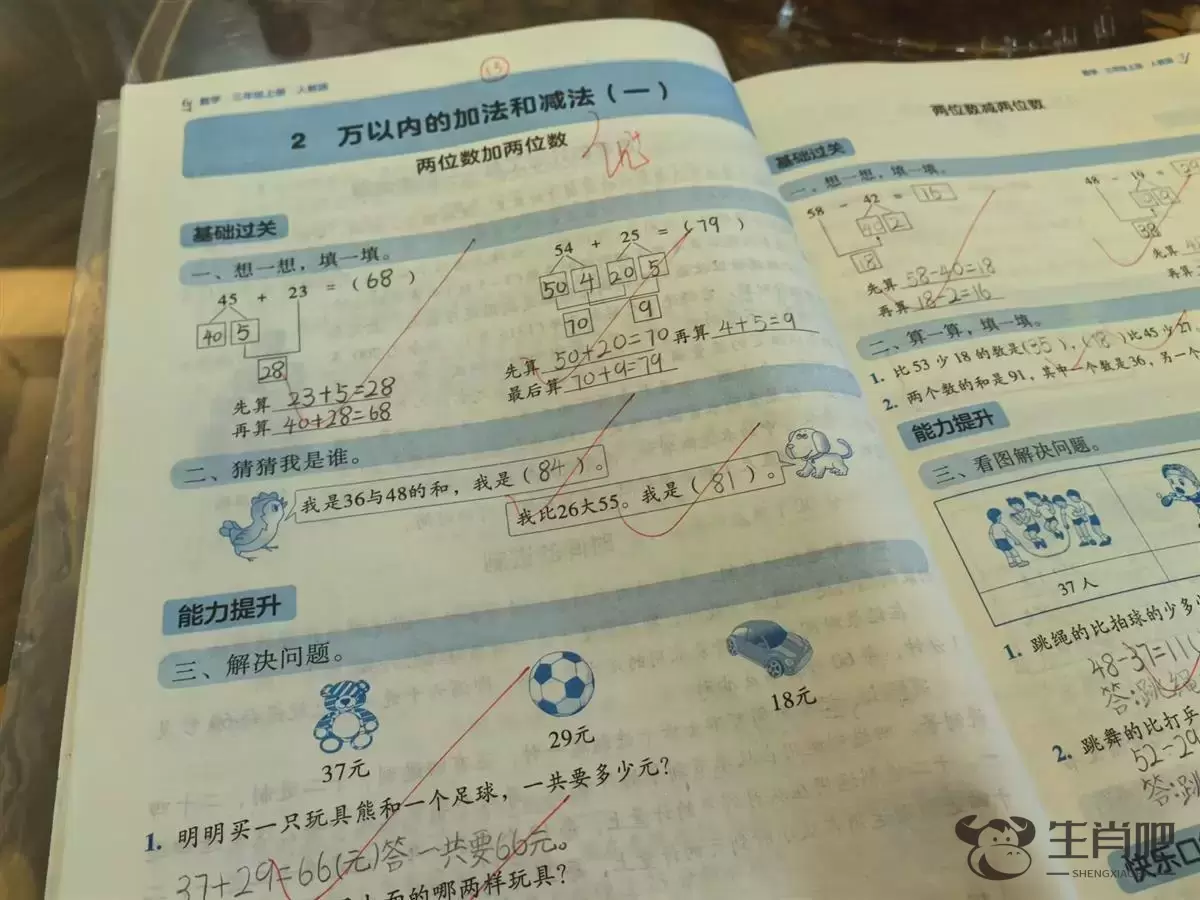 数学 三年级上册 人教版
13
2 万以内的加法和减法(一)
两位数加两位数
基础过关
一、想一想,填一填。
45 + 23 = (68)
40 5
28
先算 23+5=28
再算 40+28=68
54 + 25 = (79)
50 4 20 5
70 9
先算 50+20=70 再算 4+5=9
最后算 70+9=79
二、猜猜我是谁。
我是36与48的和,我是(84)。
我比26大55。我是(81)。
能力提升
三、解决问题。
37元
29元
18元
1. 明明买一只玩具熊和一个足球,一共要多少元?
37+29=66(元)答:一共要66元。
面的哪两样玩具?
数学 三年级上册 人教版
两位数减两位数
基础过关
一、想一想,填一填。
58 - 42 =
40 2
18
先算 58-40=18
再算 18-2=16
48 - 19 =
38
先算
再
二、算一算,填一填。
1. 比53少18的数是(35),(18)比45少27。
2. 两个数的和是91,其中一个数是36,另一个
能力提升
三、看图解决问题。
37人
1. 跳绳的比拍球的少多少
48-37=11
答:跳绳
2. 跳舞的比打乒
52-29
答:跳
快乐口
生肖吧